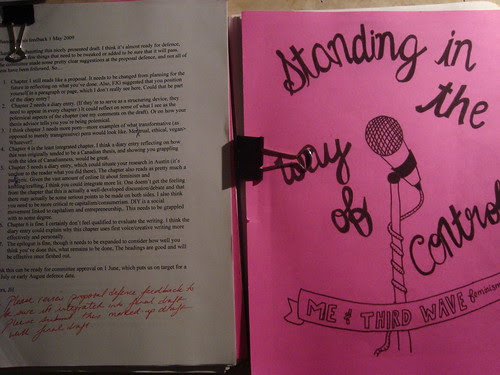 feedback 1 May 2009
submitting this nicely presented draft. I think it's almost ready for defence,
few things that need to be tweaked or added to be sure that it will pass.
made some pretty clear suggestions at the proposal defence, and not all of
have been followed. So...
1. Chapter 1 still reads like a proposal. It needs to be changed from planning for the
future to reflecting on what you've done. Also, I suggested that you position
yourself in a paragraph or page, which I don't really see here. Could that be part
of the diary entry?
Chapter 2 needs a diary entry. (If they're to serve as a structuring device, they
need to appear in every chapter) It could reflect on some of what I see as the
potential aspects of the chapter (see my comments on the draft). Or on how your
thesis advisor tells you you're being
I think chapter 2 needs more porn – more examples of what transformative (as
opposed to merely transgressive) porn would look like. Material, ethical, vegan>
Whatever!
Chapter 4 is the least integrated chapter. I think a diary entry reflecting on how
this was originally tended to be a Canadian thesis, and showing you grappling
with the idea of Canadianness, would be great.
Chapter 5 needs a diary entry, which could situate your research in Austin (it's
unclear to the reader what you did there). The chapter also reads as pretty much a
Given the vast amount of online lit about feminism and
knitting/crafting, I think you could integrate more lit. One doesn't get the feeling
from the chapter that this is actually a well-developed discussion/debate and that
there may actually be some serious points to be made on both sides. I also think
you need to be more critical re capitalism/consumerism. DIY is a social
movement linked to capitalism and entrepreneurship,. This needs to be grappled
with to some degree.
Chapter 6 is fine. I certainly don't feel qualified to evaluate the writing. I think the
diary entry could explain why this chapter uses first voice/creative writing more
effectively and personally.
The epilogue is fine, though it needs to be expanded to consider how well you
think you've done this, what remains to be done, The headings are good and will
be effective once fleshed out.
this can be ready for committee approval on 1 June, which puts us on target for a
July or early August defence date.
Please review proposal defence feedback to
be sure its integrated in final draft.
Please submit this marked-up draft
with final draft
Standing in
the
way
of
Control
ME & THIRD WAVE feminism